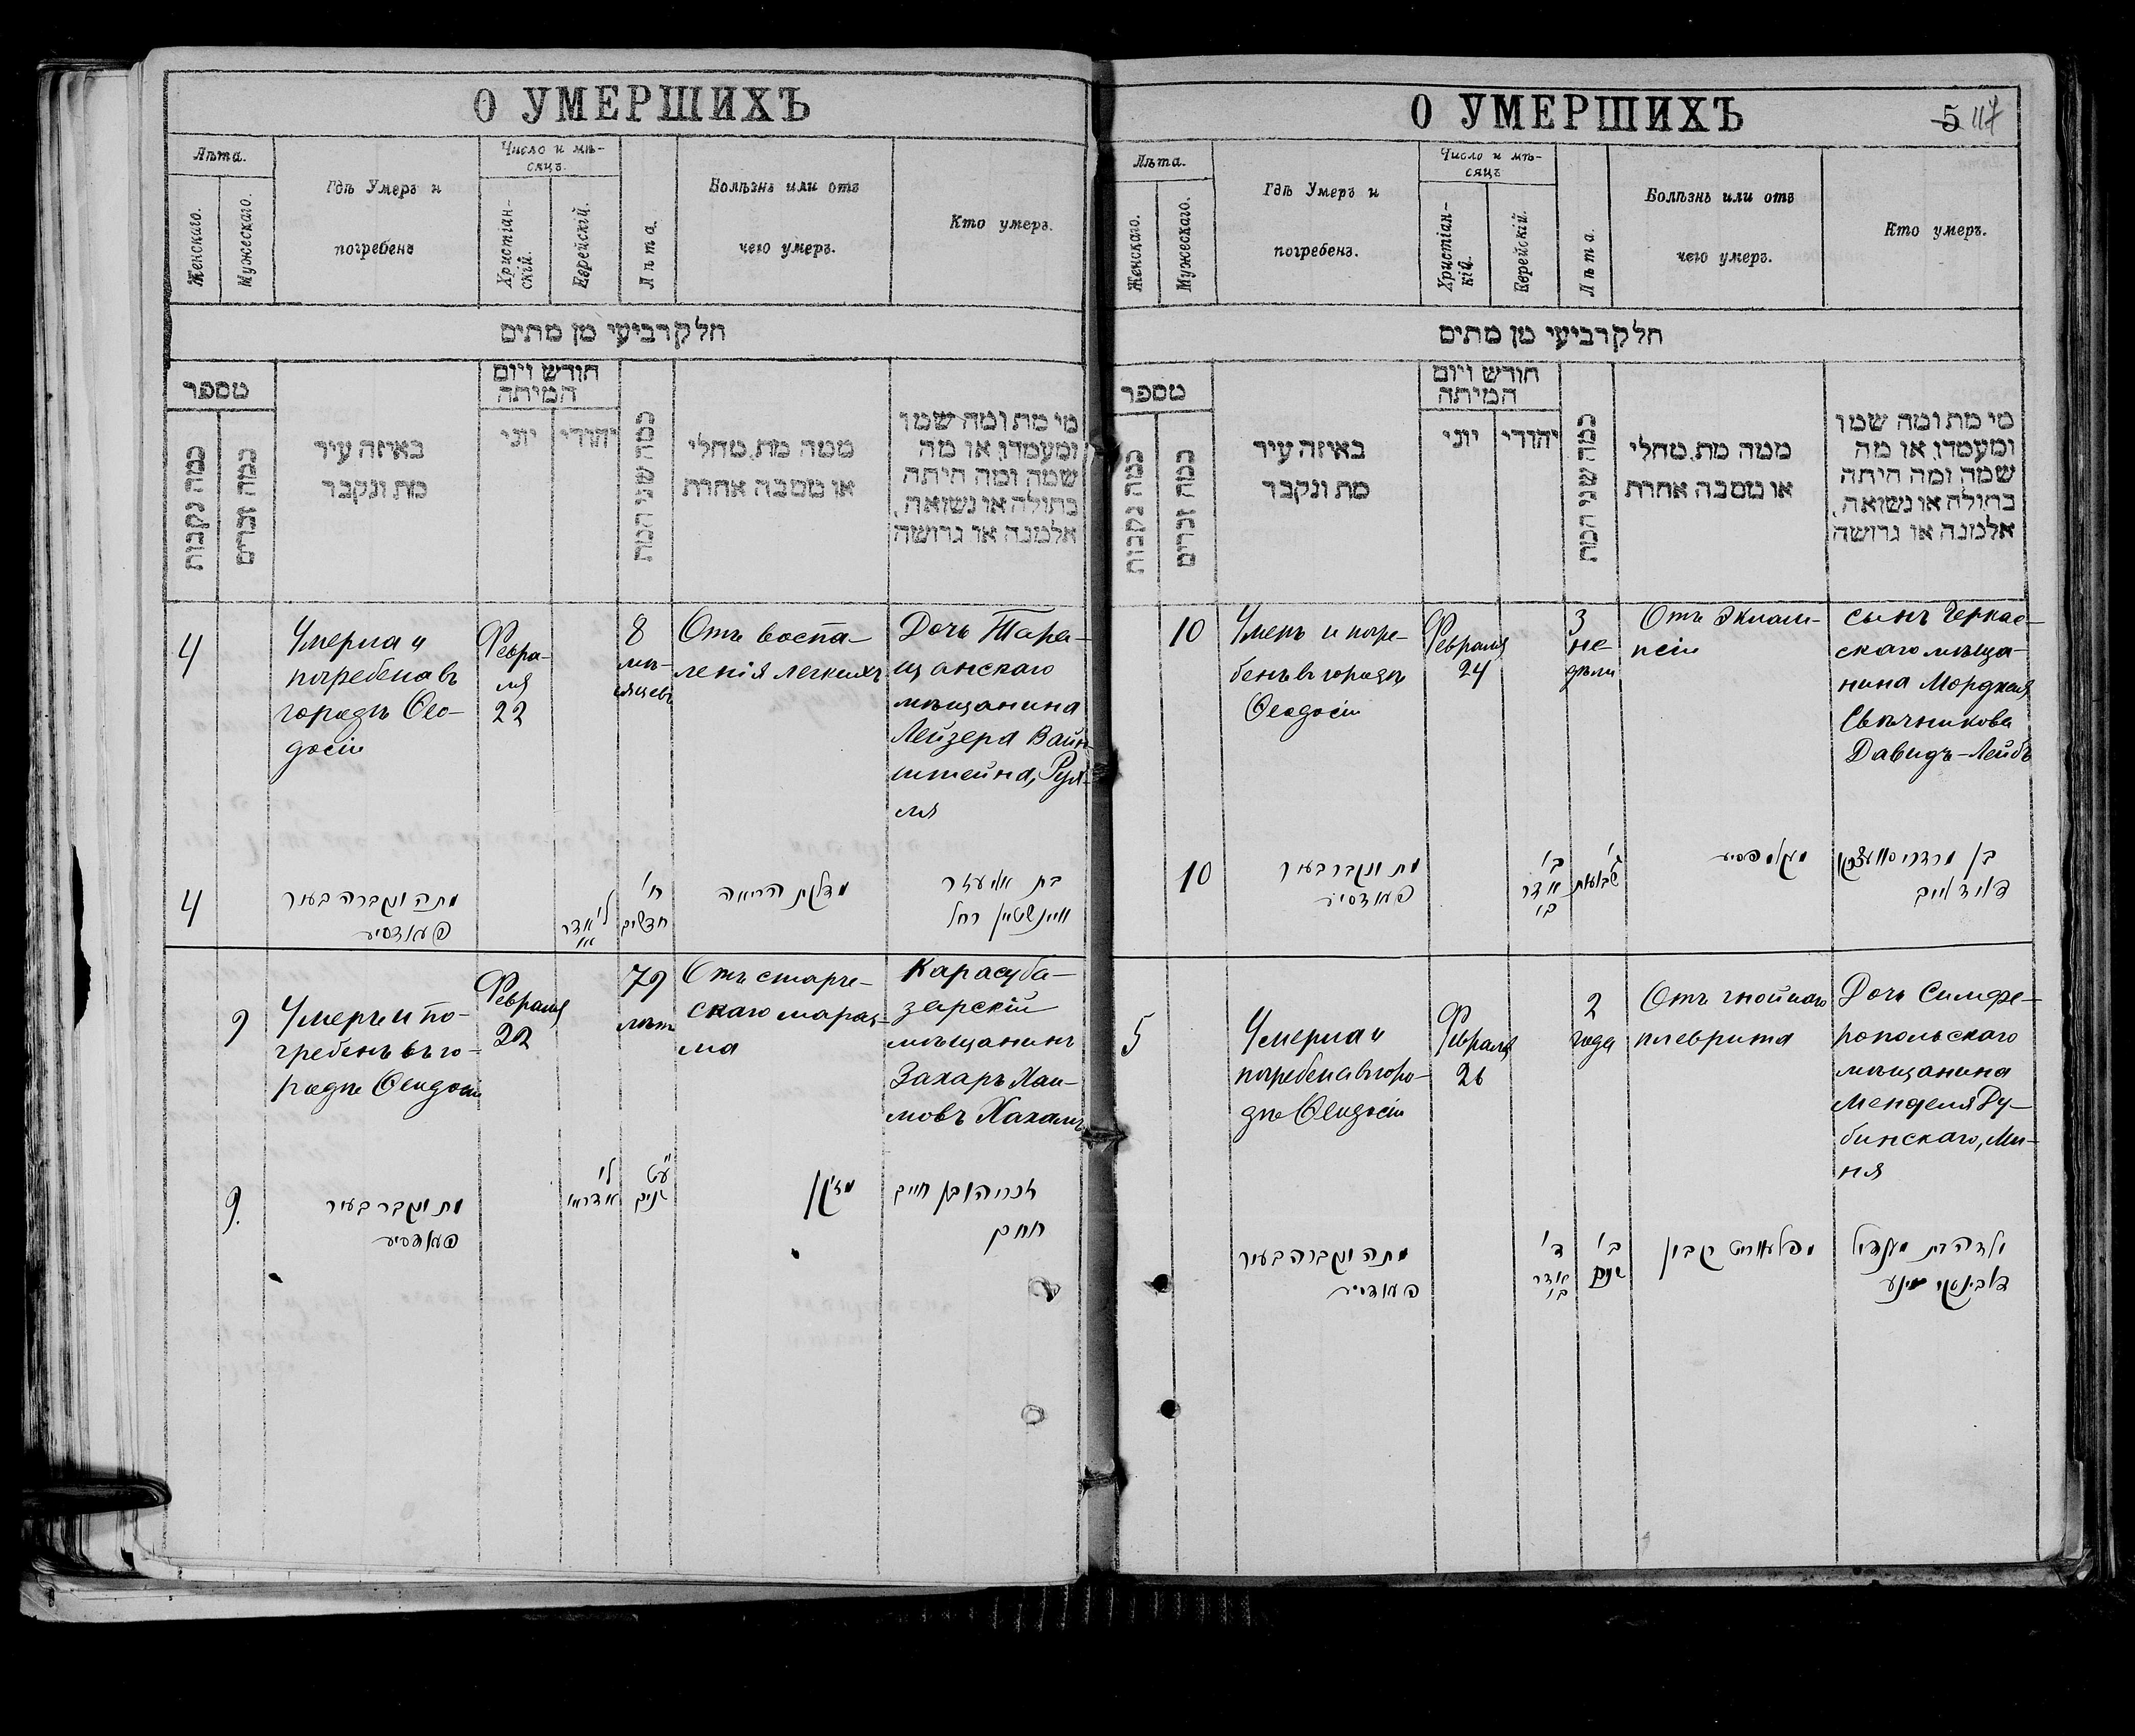 О УМЕРШИХЪ
Лѣта.
Женскаго.
Мужескаго.
Гдѣ Умеръ и
погребенъ
Число и мѣ-
сяцъ.
Христіан-
скій.
Еврейскій.
Лѣта.
Болѣзнь или отъ
чего умеръ.
Кто умеръ.
חלק רביעי מן מתים
מספר
כמה נקבות
כמה זכרים
באיזה עיר
מת ונקבר
חודש ויום
המיתה
יוני
יהודי
כמה שני המת
ממה מת, מחלי
או מסבה אחרת
מי מת ומה שמו
ומעמדו, או מה
שמה ומה היתה
בתולה או נשואה,
אלמנה או גרושה
4
Умерла и
погребена въ
городѣ Ѳео-
досіи
Февра-
ля
22
8
мѣ-
сяцевъ
Отъ воспа-
ленія легкихъ
Дочь Тара-
щанскаго
мѣщанина
Лейзера Вайн-
штейна, Рух-
ля
4
מתה ונקברה בעיר
פעאדסיע
ל׳ אדר
ח׳
חדשים
מדלקת הריאה
בת אליעזר
וויינשטיין רחל
9
Умеръ и по-
гребенъ въ го-
родѣ Ѳеодосіи
Февраля
22
79
лѣтъ
Отъ старче-
скаго мараз-
ма
Карасуба-
зарскій
мѣщанинъ
Захаръ Хаи-
мовъ Хахамъ
9.
מת ונקבר בעיר
פעאדסיע
ל׳
אדר א׳
ע״ט
שנים
מזקן
זכריהו בן חיים
חחם
О УМЕРШИХЪ
5 117
Лѣта.
Женскаго.
Мужескаго.
Гдѣ Умеръ и
погребенъ.
Число и мѣ-
сяцъ
Христіан-
кій.
Еврейскій.
Лѣта.
Болѣзнь или отъ
чего умеръ.
Кто умеръ.
חלק רביעי מן מתים
מספר
כמה נקבות
כמה זכרים
באיזה עיר
מת ונקבר
חודש ויום
המיתה
יוני
יהודי
כמה שני המת
ממה מת, מחלי
או מסבה אחרת
מי מת ומה שמו
ומעמדו, או מה
שמה ומה היתה
בתולה או נשואה,
אלמנה או גרושה
10
Умеръ и погре-
бенъ въ городѣ
Ѳеодосіи
Февраля
24
3
не-
дѣли
Отъ Эклам-
псіи
сынъ Черкас-
скаго мѣща-
нина Мордхая
Свѣчникова
Давидъ-Лейбъ
10
מת ונקבר בעיר
פעאדסיע
ב׳
אדר
ב׳
ג׳
שבועות
בן מרדכי
דוד לייב
5
Умерла и
погребена въ горо-
дѣ Ѳеодосіи
Февраля
26
2
года
Отъ гнойнаго
плеврита
Дочь Симфе-
ропольскаго
мѣщанина
Менделя Ду-
бинскаго, Ми-
ня
מתה ונקברה בעיר
פעאדסיע
ד׳
אדר
ב׳
ב׳
שנים
ילדה בת מענדיל
דובינסקי מינע